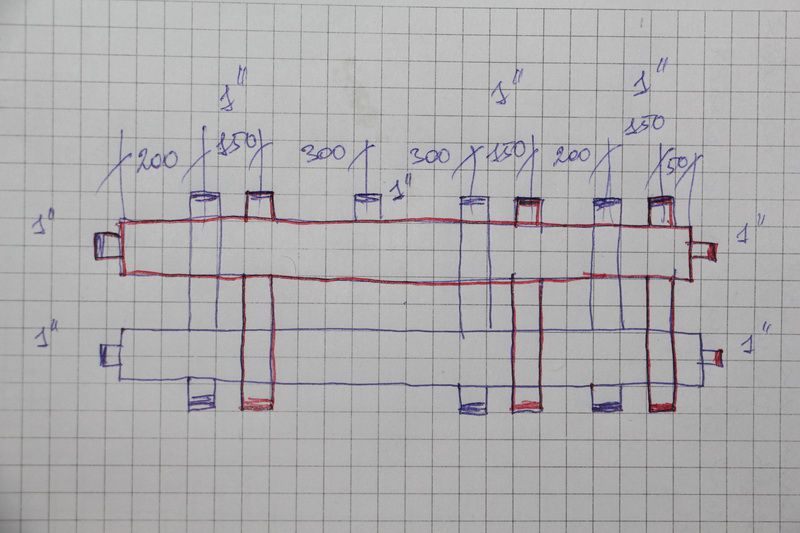 1" 1" 1"
200 150 300 300 150 200 150 50
1" 1" 1"
1" 1"